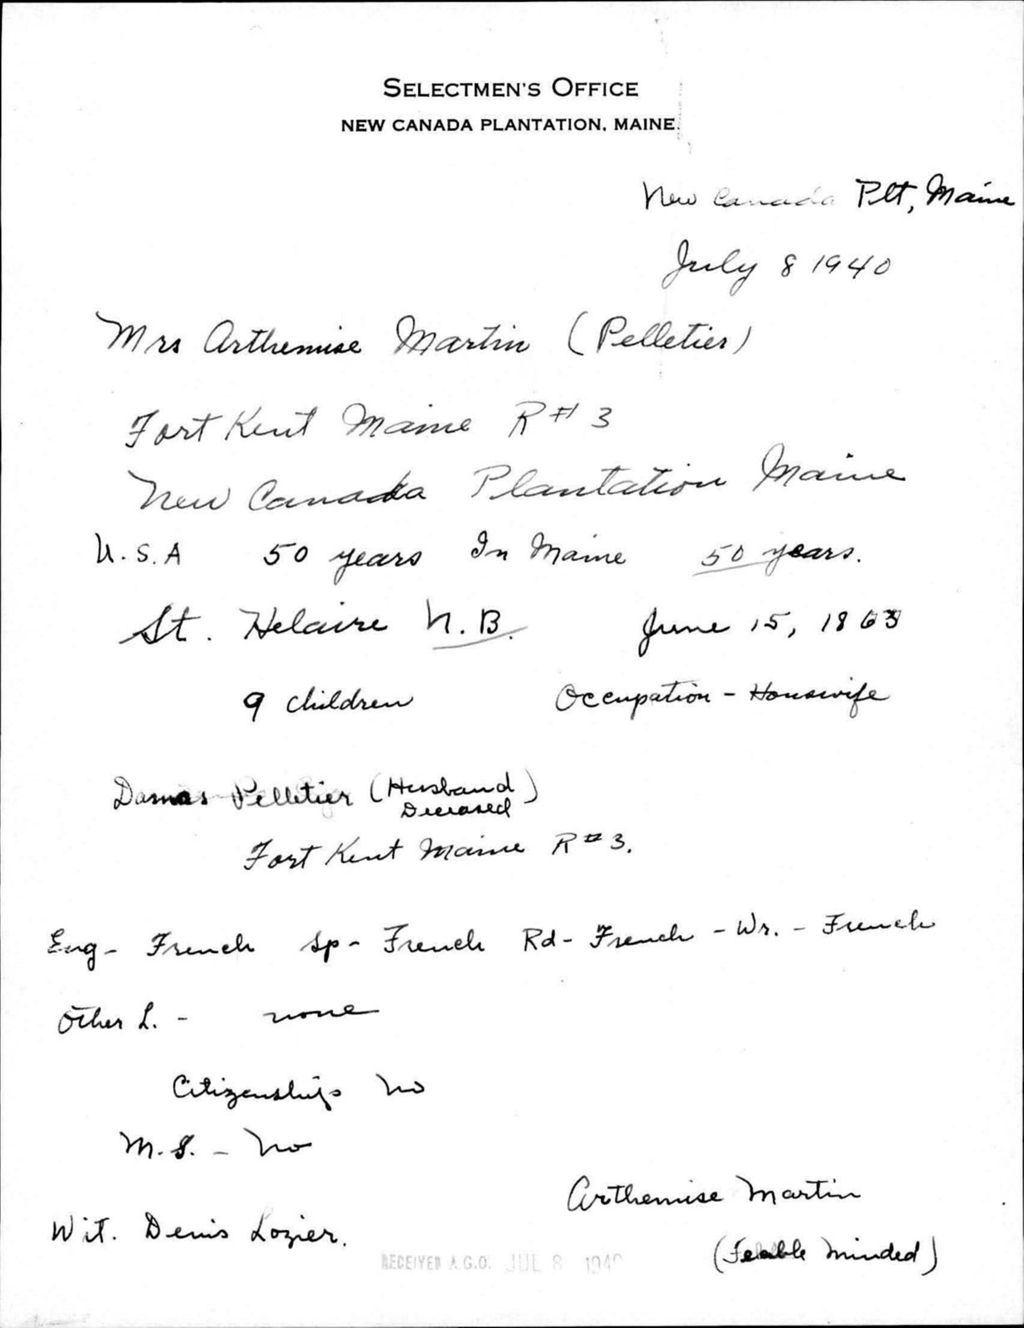 SELECTMEN'S OFFICE
NEW CANADA PLANTATION, MAINE
New Canada Plt, Maine
July 8 1940
Mrs Arthemise Martin (Pelletier)
Fort Kent Maine R#3
New Canada Plantation Maine
U.S.A 50 years In Maine 50 years.
St. Helaire N.B. June 15, 1863
9 children Occupation - Housewife
Damas Pelletier (Husband)
Deceased
Fort Kent Maine R#3.
Eng - French Sp - French Rd - French - Wr. - French
Other L. - none
Citizenships No
M.S. - No
Arthemise Martin
Wit. Denis Lozier.
(Feable minded)
RECEIVED A.G.O. JUL 8 1940